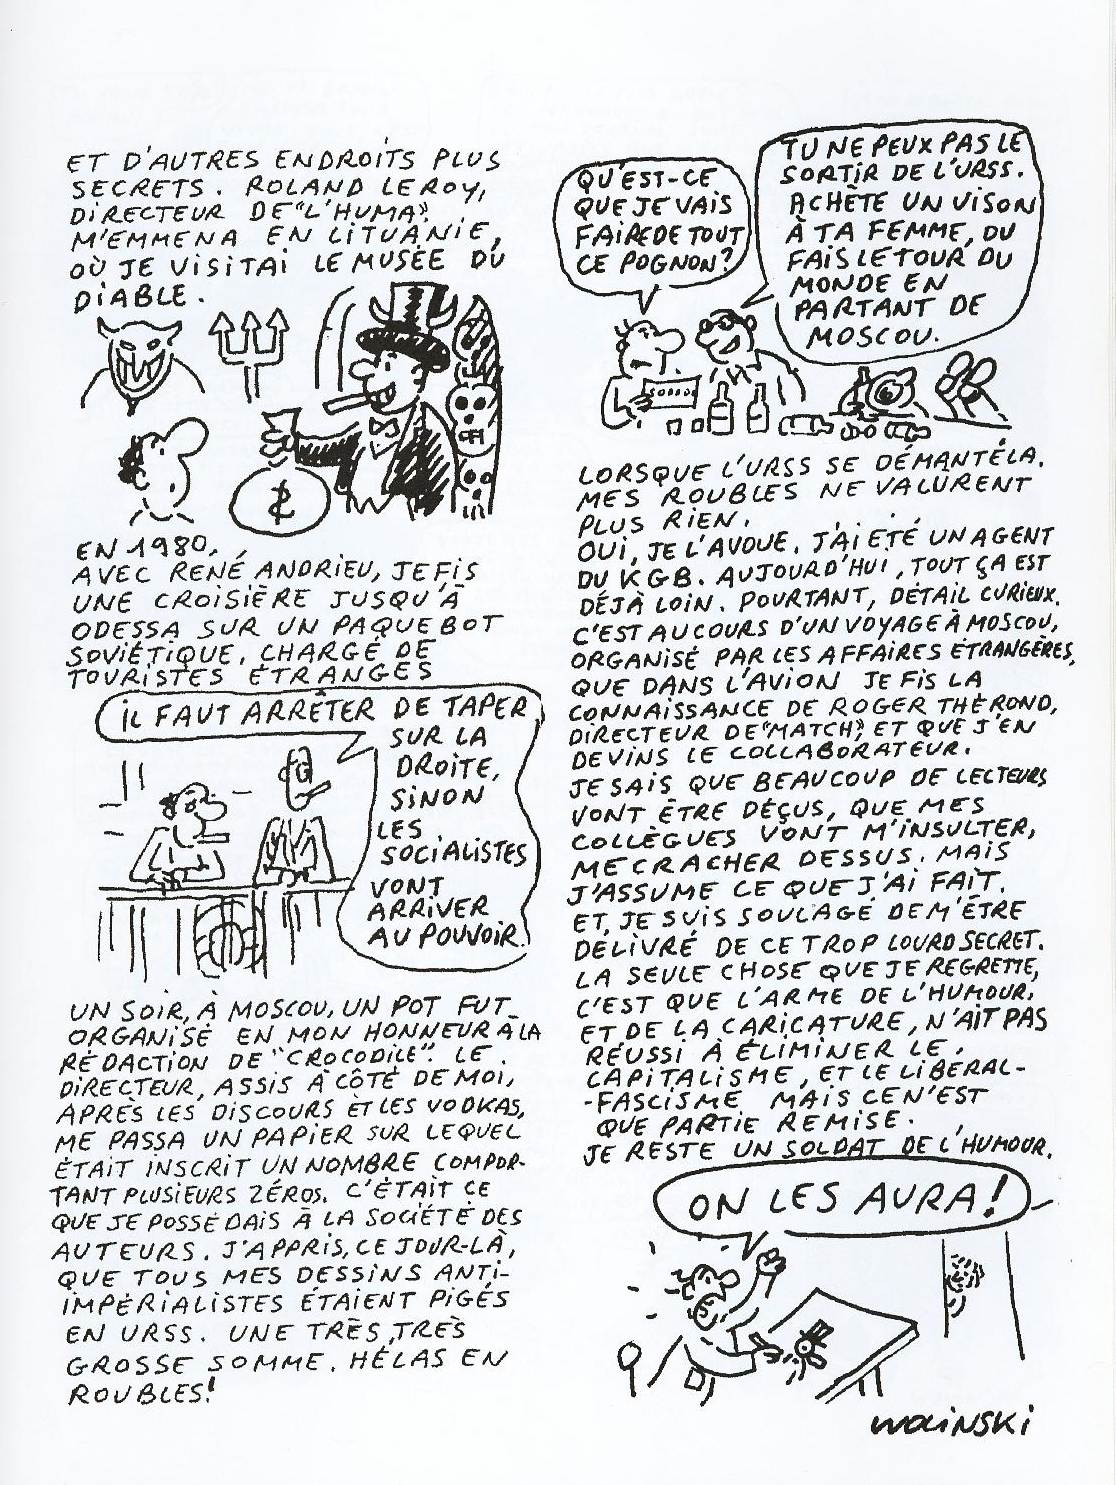 ET D'AUTRES ENDROITS PLUS
SECRETS. ROLAND LEROY,
DIRECTEUR DE "L'HUMA",
M'EMMENA EN LITUANIE,
OÙ JE VISITAI LE MUSÉE DU
DIABLE.
EN 1980,
AVEC RENÉ ANDRIEU, JE FIS
UNE CROISIÈRE JUSQU'À
ODESSA SUR UN PAQUEBOT
SOVIÉTIQUE, CHARGÉ DE
TOURISTES ÉTRANGES
IL FAUT ARRÊTER DE TAPER
SUR LA
DROITE,
SINON
LES
SOCIALISTES
VONT
ARRIVER
AU POUVOIR.
UN SOIR, À MOSCOU, UN POT FUT
ORGANISÉ EN MON HONNEUR À LA
RÉDACTION DE "CROCODILE". LE
DIRECTEUR, ASSIS À CÔTÉ DE MOI,
APRÈS LES DISCOURS ET LES VODKAS,
ME PASSA UN PAPIER SUR LEQUEL
ÉTAIT INSCRIT UN NOMBRE COMPOR-
TANT PLUSIEURS ZÉROS. C'ÉTAIT CE
QUE JE POSSÉDAIS À LA SOCIÉTÉ DES
AUTEURS. J'APPRIS, CE JOUR-LÀ,
QUE TOUS MES DESSINS ANTI-
IMPÉRIALISTES ÉTAIENT PIGÉS
EN URSS. UNE TRÈS, TRÈS
GROSSE SOMME. HÉLAS EN
ROUBLES!
QU'EST-CE
QUE JE VAIS
FAIRE DE TOUT
CE POGNON?
TU NE PEUX PAS LE
SORTIR DE L'URSS.
ACHÈTE UN VISON
À TA FEMME, OU
FAIS LE TOUR DU
MONDE EN
PARTANT DE
MOSCOU.
LORSQUE L'URSS SE DÉMANTELA,
MES ROUBLES NE VALURENT
PLUS RIEN.
OUI, JE L'AVOUE, J'AI ÉTÉ UN AGENT
DU KGB. AUJOURD'HUI, TOUT ÇA EST
DÉJÀ LOIN. POURTANT, DÉTAIL CURIEUX,
C'EST AU COURS D'UN VOYAGE À MOSCOU,
ORGANISÉ PAR LES AFFAIRES ÉTRANGÈRES,
QUE DANS L'AVION JE FIS LA
CONNAISSANCE DE ROGER THÉROND,
DIRECTEUR DE "MATCH", ET QUE J'EN
DEVINS LE COLLABORATEUR.
JE SAIS QUE BEAUCOUP DE LECTEURS
VONT ÊTRE DÉÇUS, QUE MES
COLLÈGUES VONT M'INSULTER,
ME CRACHER DESSUS. MAIS
J'ASSUME CE QUE J'AI FAIT.
ET, JE SUIS SOULAGÉ DE M'ÊTRE
DÉLIVRÉ DE CE TROP LOURD SECRET.
LA SEULE CHOSE QUE JE REGRETTE,
C'EST QUE L'ARME DE L'HUMOUR,
ET DE LA CARICATURE, N'AIT PAS
RÉUSSI À ÉLIMINER LE
CAPITALISME, ET LE LIBÉRAL-
-FASCISME MAIS CE N'EST
QUE PARTIE REMISE.
JE RESTE UN SOLDAT DE L'HUMOUR.
ON LES AURA!
WOLINSKI